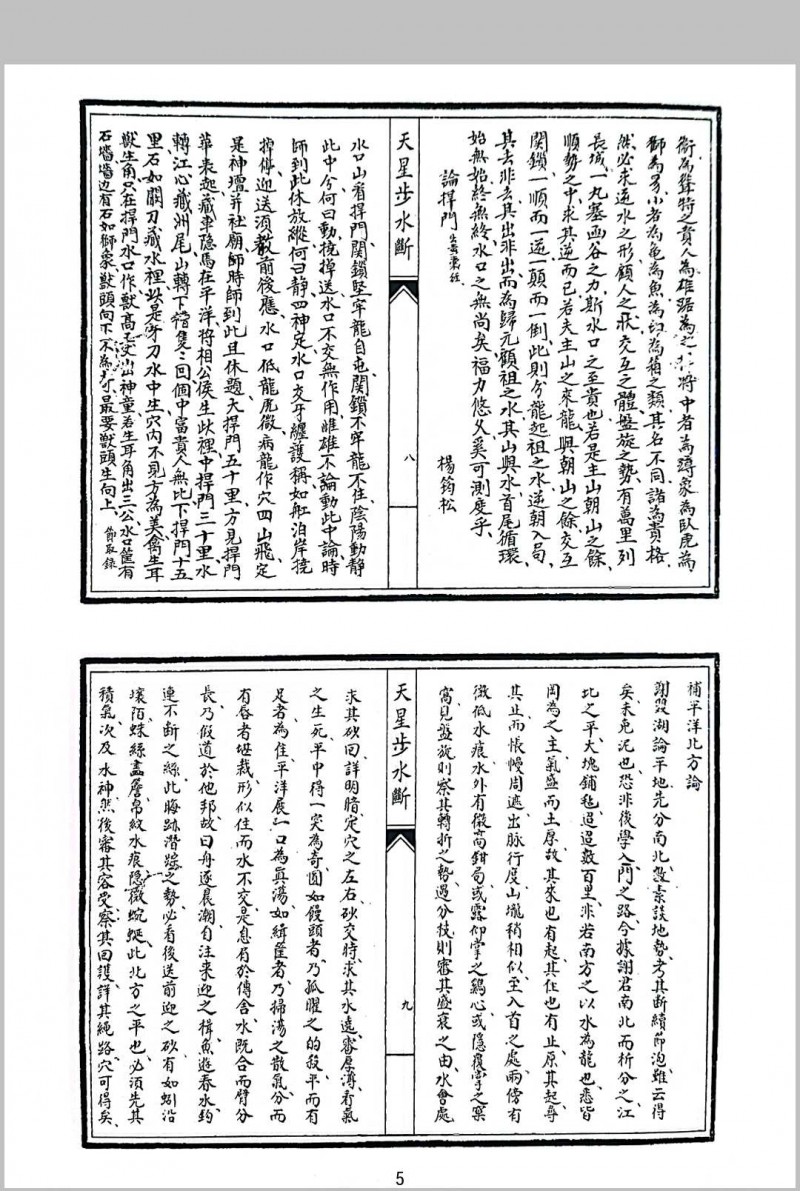 衛為聳特之貴人為雄踞為之將中者為蹲象為臥虎為
獅為 小者為龜為魚為印為箱之類其名不同諸為貴格
然必求逆水之形顧人之狀交互之體盤旋之勢有萬里列
長城一丸塞函谷之力斯水口之至貴也若是主山朝山之餘
順勢之中求其逆而已若夫主山之來龍與朝山之餘交互
關鎖一順而一逆一顛而一倒此則分龍起祖之水逆朝入局
其去非去其出非出而為歸元顧祖之水其山與水首尾循環
始無始終無終水口之無尚矣福力悠久奚可測度乎
論捍門
楊筠松
天星步水斷
八
水口山看捍門關鎖堅牢龍自屯關鎖不牢龍不住陰陽動靜
此中分何曰動撓掉送水口不交無作用雌雄不論動此中論時
師到此休放縱何曰靜四神定水口交牙纏護稱如舡泊岸撓
掉停迎送須教前後應水口低龍虎微病龍作穴四山飛定
是神壇并社廟師時師到此且休題大捍門五十里方見捍門
華表起藏車隱馬在平洋將相公侯生此裡中捍門三十里水
轉江心藏洲尾山轉下 雙二回個中富貴人無比下捍門十五
里石如關刀藏水裡此是牙刀水中生穴內不見方為美禽生耳
獸生角只在捍門水口作獸高 丈出神童若生耳角出三公水口 有
石墻墻边有石如獅象獸頭向下不為 最要獸頭生向上 節取錄
補平洋北方論
謝双湖論平地先分南北 素談地勢考其斷續節泡雖云得
矣未免泥也恐非後學入門之路今據謝君南北而析分之江
北之平大塊鋪毡迢迢数百里非若南方之以水為龍也悉皆
岡為之主氣盛而土厚故其來也有起其住也有止原其起尋
其止而帳幔周遮出脉行度山壠稍相似至入首之處兩傍有
微低水痕水外有微高鉗局或露仰掌之鷄心或隱覆掌之窠
窩見盤旋則察其轉折之勢遇分枝則審其盛衰之由水會處
天星步水斷
九
求其砂回詳明暗定穴之左右砂交時求其水遠審厚薄看氣
之生死平中得一突為奇圓如饅頭者乃孤曜之的殺平而有
足者為住平洋展一口為眞湯如綺筐者乃掃蕩之散氣分而
有唇者堪裁形似住而水不交是息肩於傳舍水既合而臂分
長乃假道於他邦故曰舟逐晨潮自注來迎之楫魚遊春水鈞
連不斷之絲此晦跡潛踪之勢必看後送前迎之砂有如蚓沿
壞陌蛛絲畫簷帛紋水痕隱微蜿蜒此北方之平也必須先其
積氣次及水神然後審其容受察其回護詳其純路穴可得矣
5